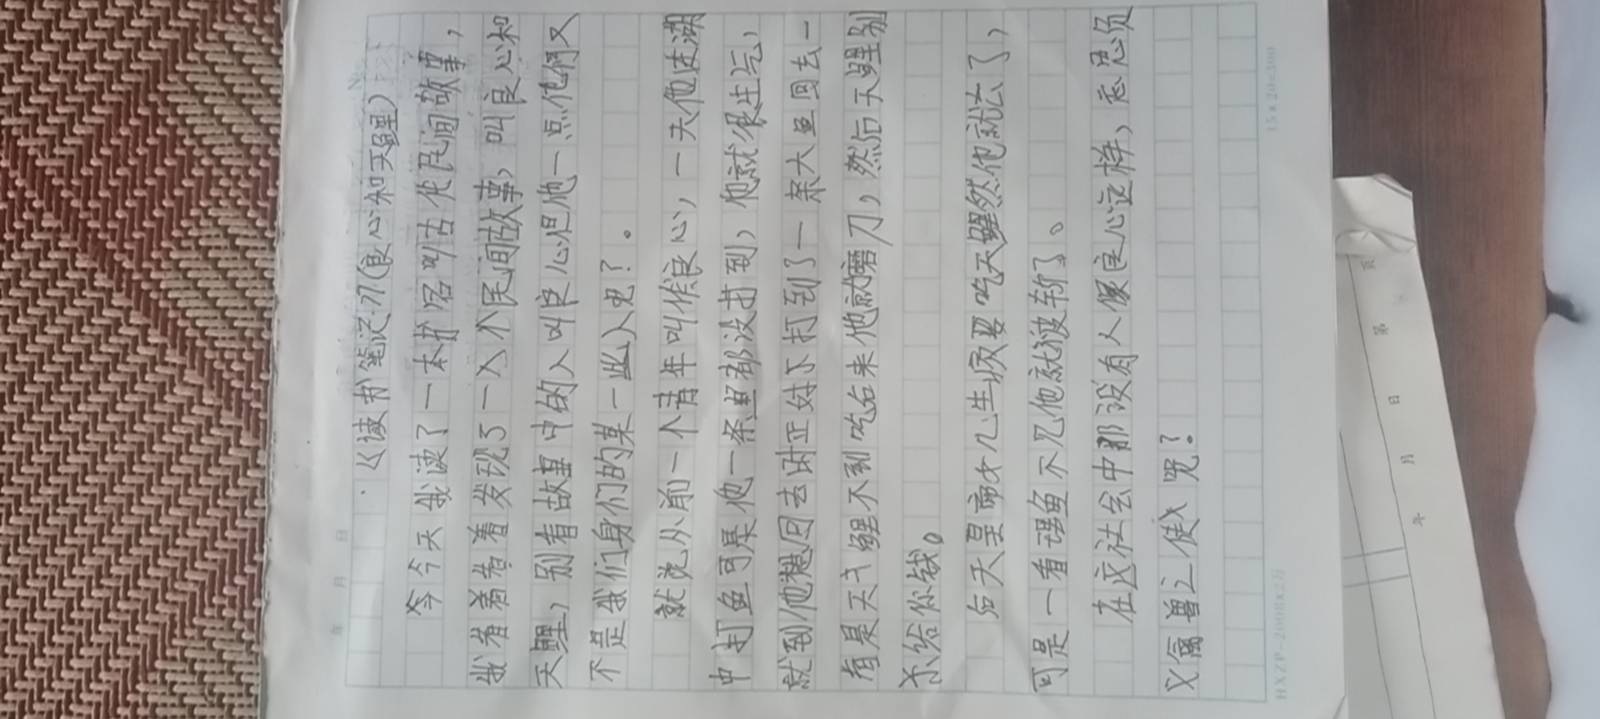 《读书笔记》(良心和天鲤)
今今天我读了一本书名叫古代民间故事,
我看着着发现了一个民间故事,叫良心和
天鲤,别看故事中的人叫良心但他一点他们又
不是我们身们的某一些人呢?。
就说从前一个青年叫做良心,一天他进湖
中打鱼可是他一条鱼都没打到,他就很生气,
就到他想回去时正好下打到了一条大鱼回去一
看是天鲤不到吃右来他就磨刀,然后天鲤别
杀给你钱。
后天皇帝女儿生病要吃天鲤然他就去了,
可是一看鲤鱼不见他就被斩了。
在这社会中那没有人像良心这样,忘恩负
义禽兽之使呢?
年 月 日
HXZP-2008×2万
15×20=300
年 月 日 第 页